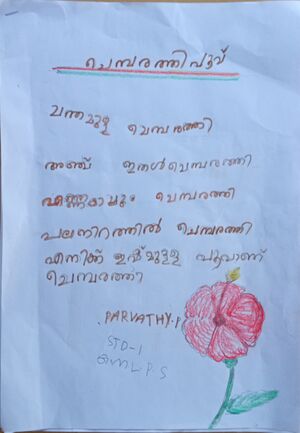 ചെമ്പരത്തിപൂവ്
ചന്തമുള്ള ചെമ്പരത്തി
അഞ്ച് ഇതൾ ചെമ്പരത്തി
എണ്ണകാച്ചും ചെമ്പരത്തി
പലനിറത്തിൽ ചെമ്പരത്തി
എനിക്ക് ഇഷ്ട്മുള്ള പൂവാണ്
ചെമ്പരത്തി
PARVATHY.P
STD-1
L.P.S